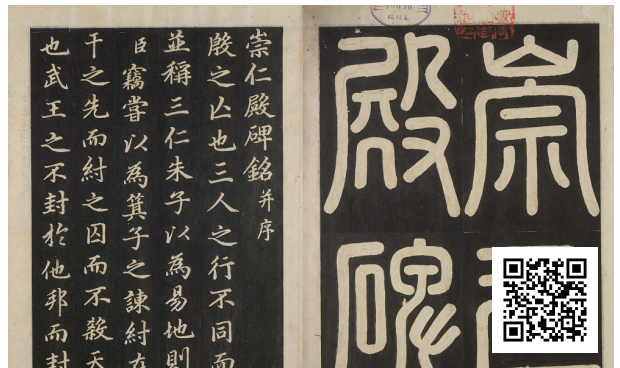 崇
殿碑
崇仁殿碑銘并序
殷之亾也三人之行不同而
並稱三仁朱子以為易地則
臣竊嘗以為箕子之諫紂
干之先而紂之囚而不殺天
也武王之不封於他邦而封